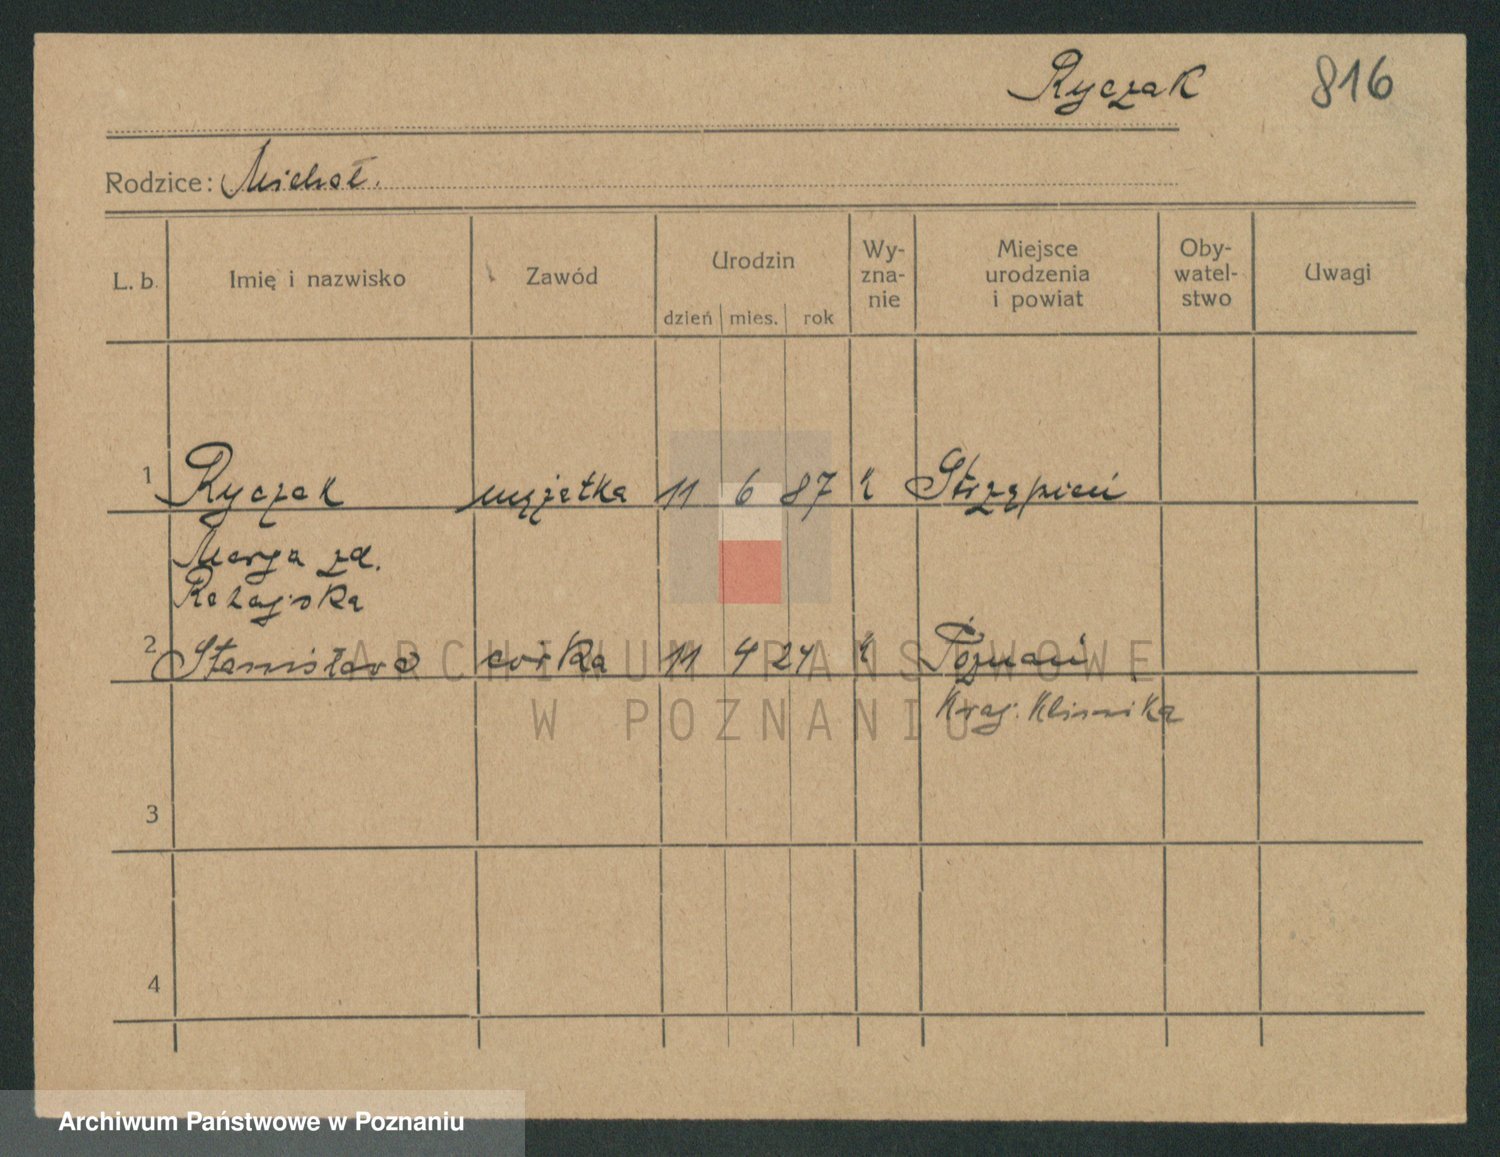 Ryczak 816
Rodzice: Michał.
L. b. Imię i nazwisko Zawód Urodzin dzień mies. rok Wy-zna-nie Miejsce urodzenia i powiat Oby-watel-stwo Uwagi
1 Ryczak mężatka 11 6 87 k Strzępień
Marya zd.
Ratajska
2 Stanisława corka 11 4 24 k Poznań
Kraj. Klinika
3
4
ARCHIWUM PAŃSTWOWE
W POZNANIU
Archiwum Państwowe w Poznaniu